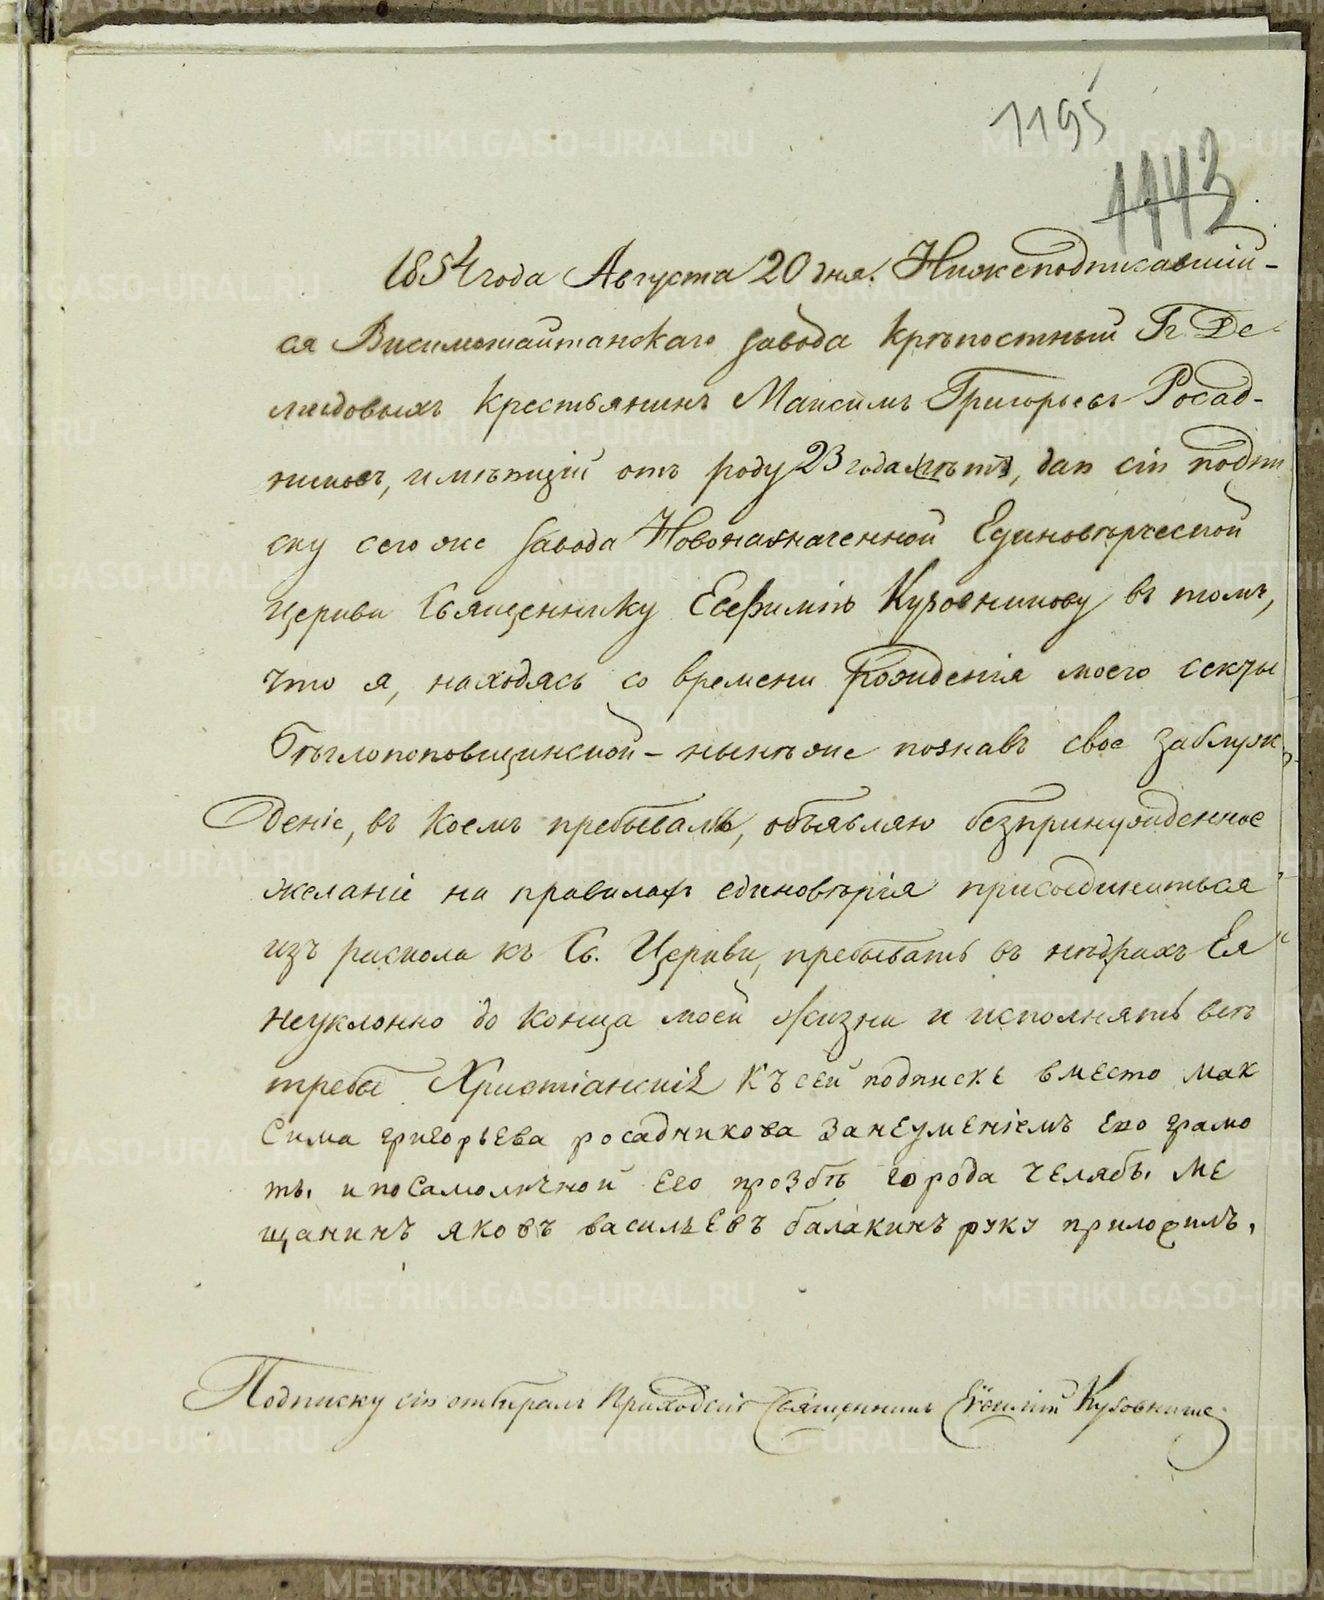 1195
1143
1854 года Августа 20 дня. Нижеподписавшій-
ся Висимошайтанскаго завода крѣпостный Гг Де-
мидовыхъ крестьянинъ Максимъ Григорьевъ Росад-
никовъ, имѣющій отъ роду 23 года лѣтъ, даю сію подпи
ску сего же завода Новоназначенной Единовѣрческой
церкви Священнику Евфимію Кузовникову въ томъ,
что я, находясь со времени рожденія моего секты
бѣглопоповщинской – нынѣ же познавъ свое заблуж
деніе, въ коемъ пребывалъ, объявляю безпринужденное
желаніе на правилахъ единовѣрія присоединиться
изъ раскола къ Св. Церкви, пребывать въ нѣдрахъ Ея
неуклонно до конца моей жизни и исполнять всѣ
требы Христіанскія Къ сей подписке вместо мак
сима григорьева росадникова занеуменіемъ его грамо
ты ипосамоличной его прозбѣ города челябы ме
щанинъ яковъ васильевъ балакинъ руку приложилъ,
Подписку сію отбиралъ Приходскій Священникъ Евѳимій Кузовниковъ
METRIKI.GASO-URAL.RU